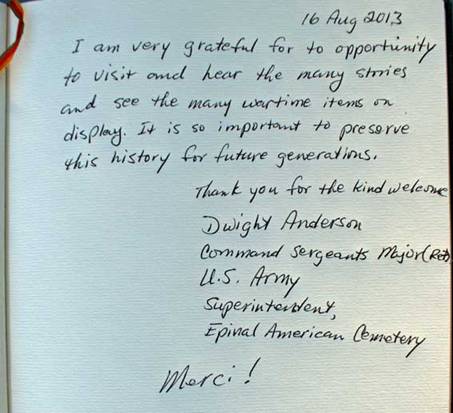 16 Aug 2013
I am very grateful for to opportunity
to visit and hear the many stories
and see the many wartime items on
display. It is so important to preserve
this history for future generations.
Thank you for the kind welcome
Dwight Anderson
Command Sergeants Major (Ret)
U.S. Army
Superintendent,
Epinal American Cemetery
Merci!